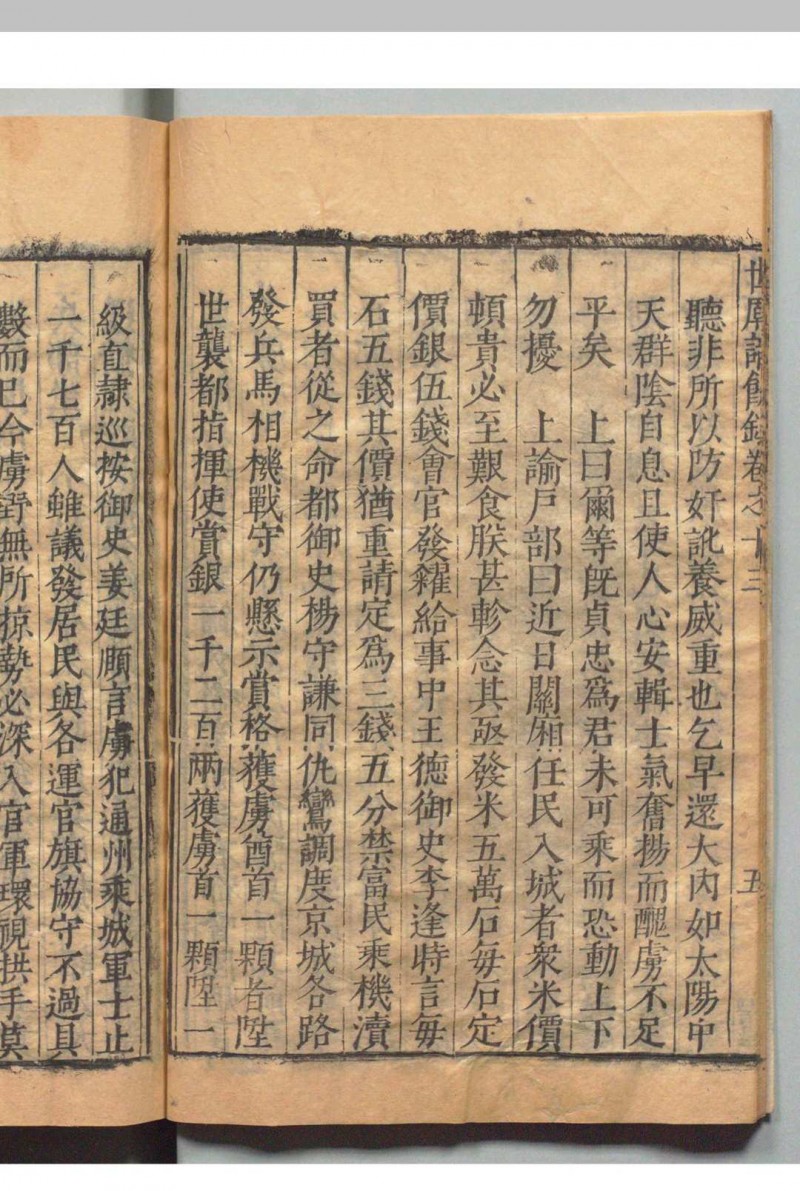 世廟識餘錄卷之十三 五
聽非所以防奸訛養威重也乞早還大內如太陽中
天群陰自息且使人心安輯士氣奮揚而醜虜不足
平矣　上曰爾等旣貞忠爲君未可乘而恐動上下
勿擾　上諭戸部曰近日關厢任民入城者衆米價
頓貴必至艱食朕甚軫念其亟發米五萬石每石定
價銀伍錢會官發糴給事中王德御史李逢時言每
石五錢其價猶重請定爲三錢五分禁富民乘機瀆
買者從之命都御史楊守謙同仇鸞調度京城各路
發兵馬相機戰守仍懸示賞格獲虜酋首一顆者陞
世襲都指揮使賞銀一千二百兩獲虜首一顆陞一
級直隷巡按御史姜廷頤言虜犯通州乘城軍士止
一千七百人雖議發居民與各運官旗協守不過具
數而已今虜野無所掠勢必深入官軍環視拱手莫